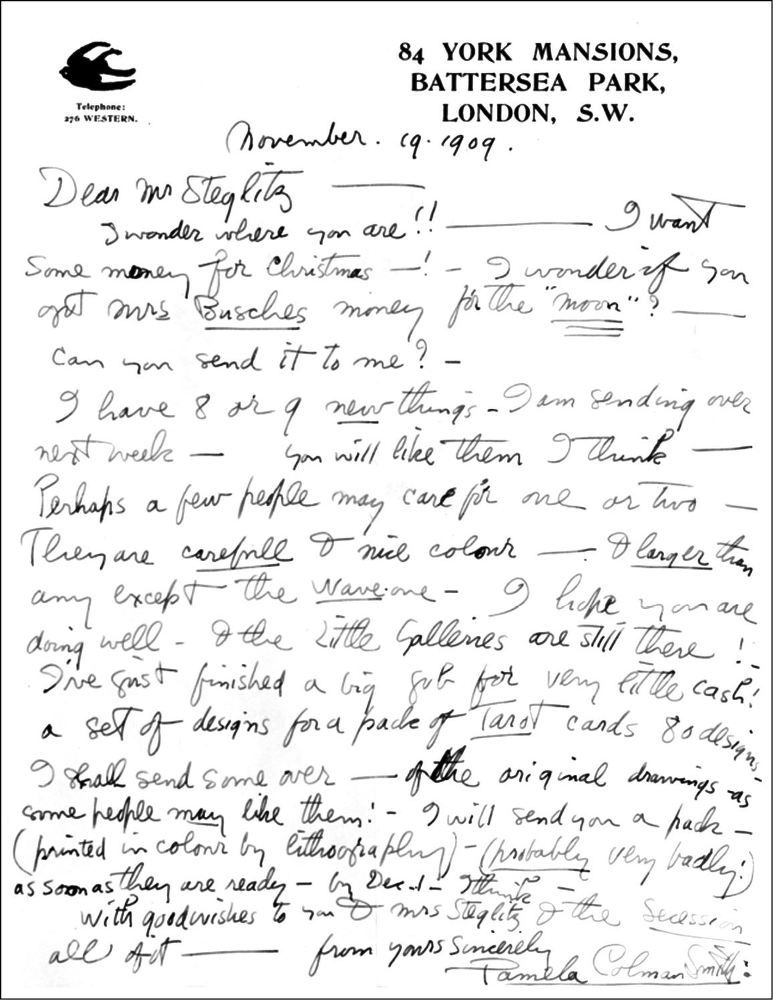 84 YORK MANSIONS,
BATTERSEA PARK,
LONDON, S.W.
Telephone:
276 WESTERN.
November. 19. 1909.
Dear Mr Steglitz —
I wonder where you are!! — I want
Some money for Christmas —! – I wonder if you
got Mrs Busches money for the "moon"? —
Can you send it to me? –
I have 8 or 9 new things – I am sending over
next week — you will like them I think —
Perhaps a few people may care for one or two —
They are carefull & nice colour — & larger than
any except the Wave one – I hope you are
doing well – & the Little Galleries are still there!!
I've just finished a big job for very little cash!
a set of designs for a pack of Tarot cards 80 designs –
I shall send some over — of the original drawings – as
some people may like them! – I will send you a pack –
(printed in colour by lithography) – (probably very badly!)
as soon as they are ready – by Dec. 1 – I think –
With good wishes to you & Mrs Steglitz & the Secession
all of it — from yours sincerely
Pamela Colman Smith: